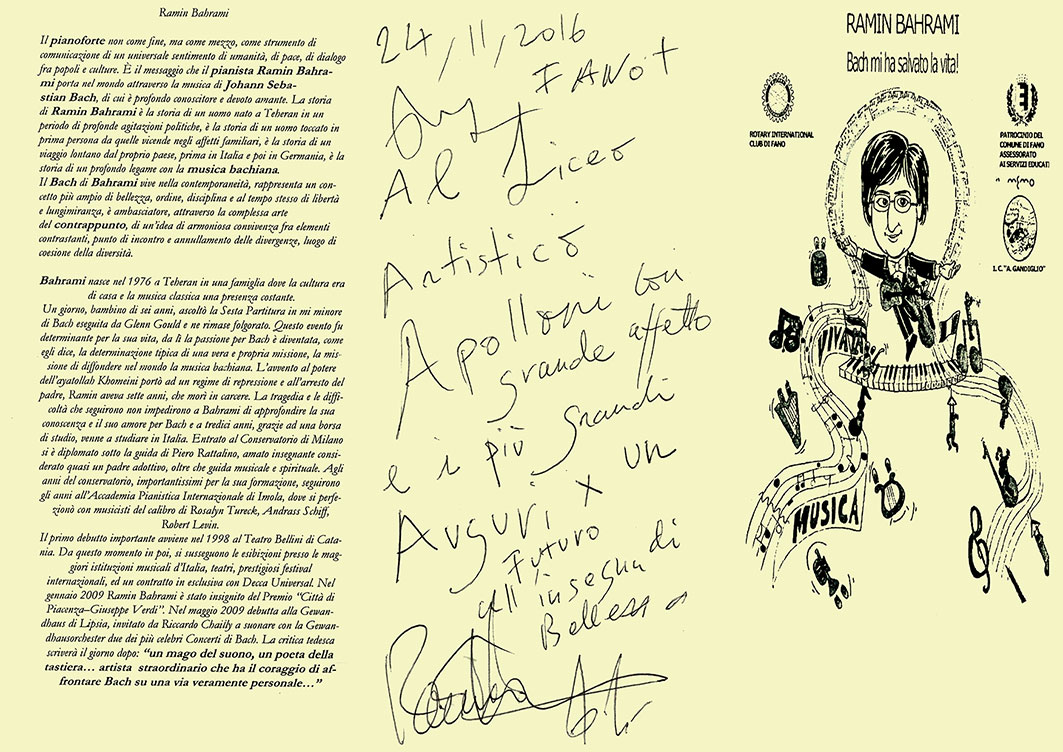 Ramin Bahrami
Il pianoforte non come fine, ma come mezzo, come strumento di
comunicazione di un universale sentimento di umanità, di pace, di dialogo
fra popoli e culture. È il messaggio che il pianista Ramin Bahra-
mi porta nel mondo attraverso la musica di Johann Seba-
stian Bach, di cui è profondo conoscitore e devoto amante. La storia
di Ramin Bahrami è la storia di un uomo nato a Teheran in un
periodo di profonde agitazioni politiche, è la storia di un uomo toccato in
prima persona da quelle vicende negli affetti familiari, è la storia di un
viaggio lontano dal proprio paese, prima in Italia e poi in Germania, è la
storia di un profondo legame con la musica bachiana.
Il Bach di Bahrami vive nella contemporaneità, rappresenta un con-
cetto più ampio di bellezza, ordine, disciplina e al tempo stesso di libertà
e lungimiranza, è ambasciatore, attraverso la complessa arte
del contrappunto, di un'idea di armoniosa convivenza fra elementi
contrastanti, punto di incontro e annullamento delle divergenze, luogo di
coesione della diversità.
Bahrami nasce nel 1976 a Teheran in una famiglia dove la cultura era
di casa e la musica classica una presenza costante.
Un giorno, bambino di sei anni, ascoltò la Sesta Partitura in mi minore
di Bach eseguita da Glenn Gould e ne rimase folgorato. Questo evento fu
determinante per la sua vita, da lì la passione per Bach è diventata, come
egli dice, la determinazione tipica di una vera e propria missione, la mis-
sione di diffondere nel mondo la musica bachiana. L'avvento al potere
dell'ayatollah Khomeini portò ad un regime di repressione e all'arresto del
padre, Ramin aveva sette anni, che morì in carcere. La tragedia e le diffi-
coltà che seguirono non impedirono a Bahrami di approfondire la sua
conoscenza e il suo amore per Bach e a tredici anni, grazie ad una borsa
di studio, venne a studiare in Italia. Entrato al Conservatorio di Milano
si è diplomato sotto la guida di Piero Rattalino, amato insegnante consi-
derato quasi un padre adottivo, oltre che guida musicale e spirituale. Agli
anni del conservatorio, importantissimi per la sua formazione, seguirono
gli anni all'Accademia Pianistica Internazionale di Imola, dove si perfe-
zionò con musicisti del calibro di Rosalyn Tureck, Andrass Schiff,
Robert Levin.
Il primo debutto importante avviene nel 1998 al Teatro Bellini di Cata-
nia. Da questo momento in poi, si susseguono le esibizioni presso le mag-
giori istituzioni musicali d'Italia, teatri, prestigiosi festival
internazionali, ed un contratto in esclusiva con Decca Universal. Nel
gennaio 2009 Ramin Bahrami è stato insignito del Premio "Città di
Piacenza–Giuseppe Verdi". Nel maggio 2009 debutta alla Gewan-
dhaus di Lipsia, invitato da Riccardo Chailly a suonare con la Gewan-
dhausorchester due dei più celebri Concerti di Bach. La critica tedesca
scriverà il giorno dopo: "un mago del suono, un poeta della
tastiera… artista straordinario che ha il coraggio di af-
frontare Bach su una via veramente personale…"
24/11/2016
FANO
Al Liceo
Artistico
Apolloni con
grande affetto
e i più grandi
Auguri x un
Futuro
all'insegna di
Bellezza
RAMIN BAHRAMI
Bach mi ha salvato la vita!
ROTARY INTERNATIONAL
CLUB DI FANO
PATROCINIO DEL
COMUNE DI FANO
ASSESSORATO
AI SERVIZI EDUCATI
I.C."A. GANDIGLIO"
VIVA LA
MUSICA